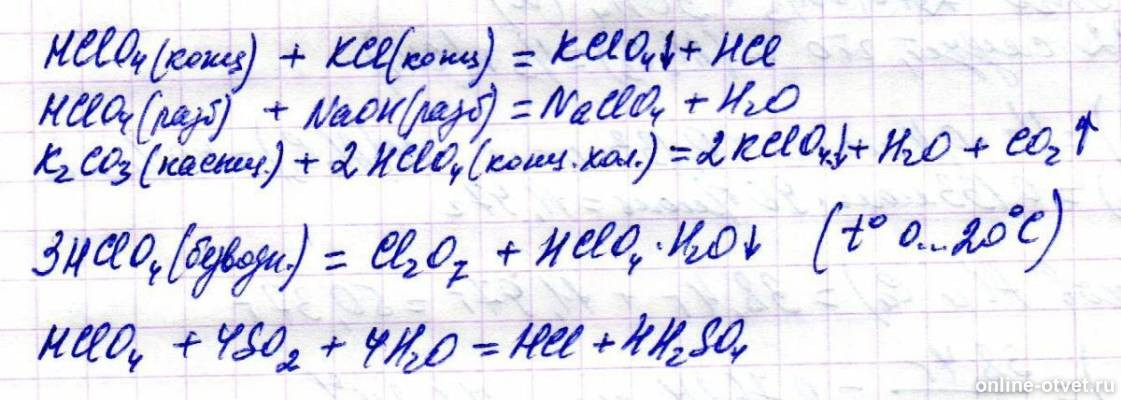 HClO₄(конц) + KCl(конц) = KClO₄↓ + HCl
HClO₄(разб) + NaOH(разб) = NaClO₄ + H₂O
K₂CO₃(насыщ.) + 2HClO₄(конц. хол.) = 2KClO₄↓ + H₂O + CO₂↑
3HClO₄(безводн.) = Cl₂O₇ + HClO₄·H₂O↓ (t° 0...20°C)
HClO₄ + 4SO₂ + 4H₂O = HCl + 4H₂SO₄
online-otvet.ru